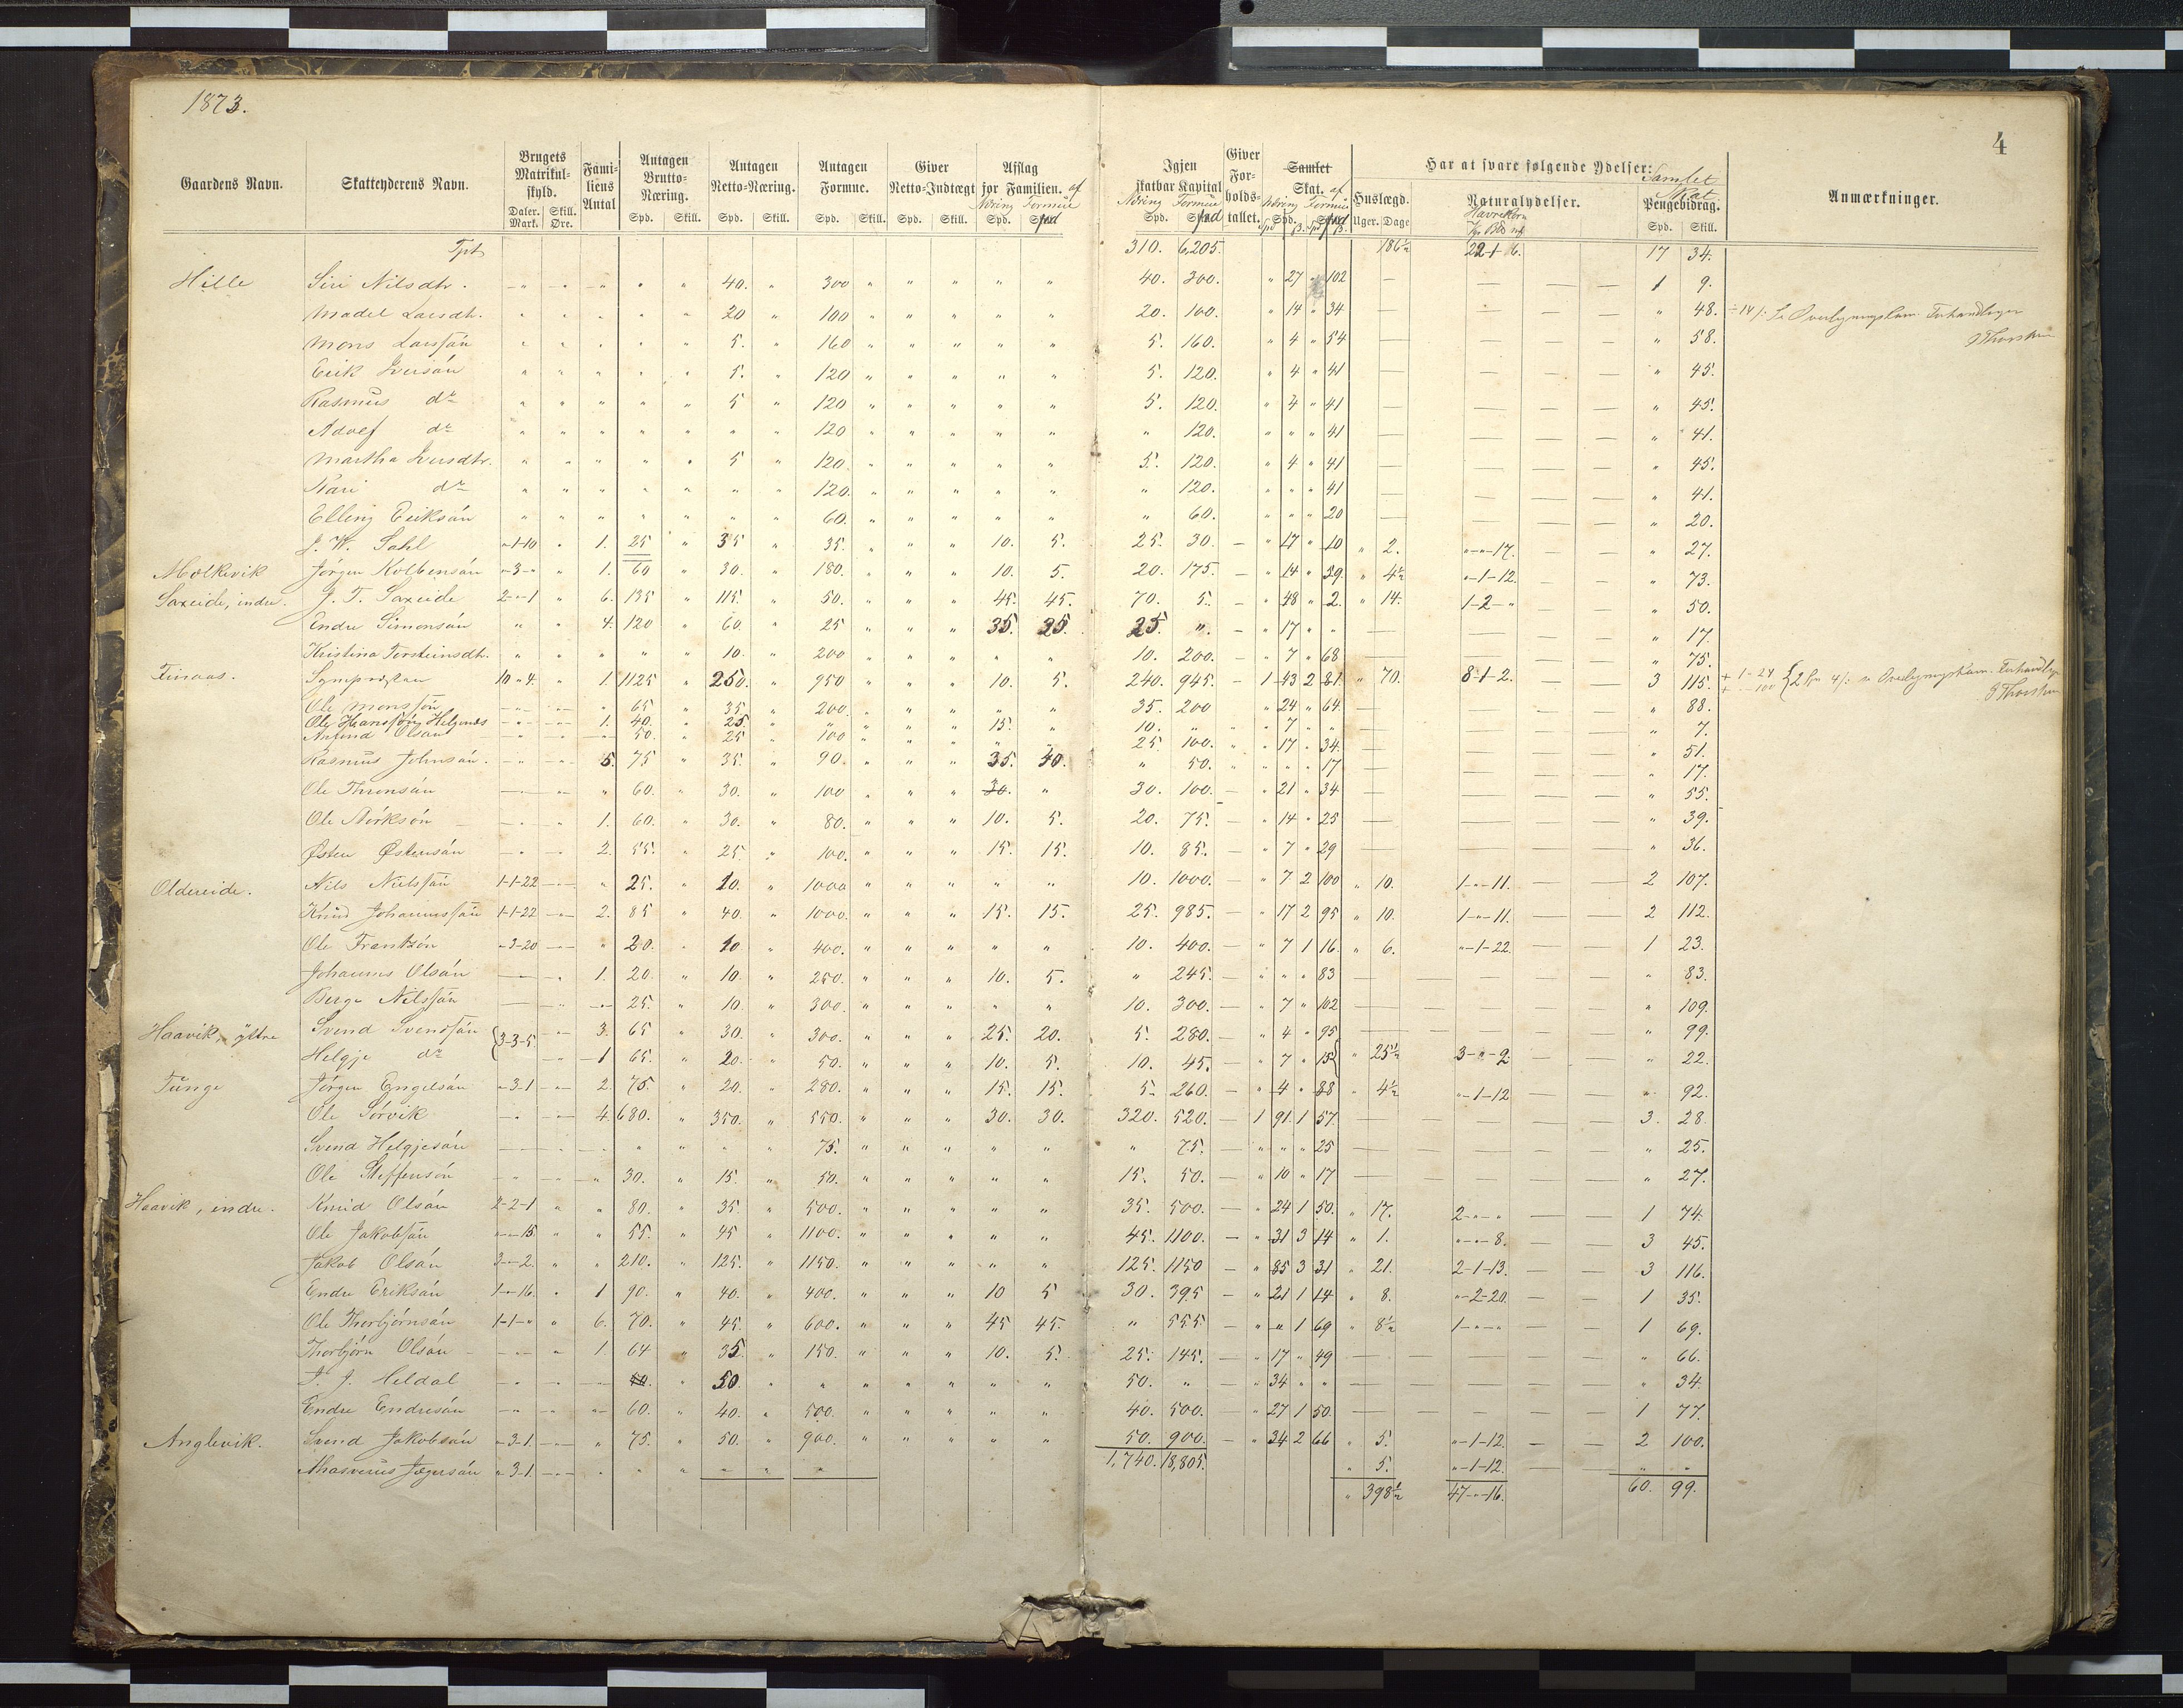 1873.
4
Gaardens Navn. Skatteyderens Navn. Brugets Matrikulskyld. Daler. Mark. Skill. Øre. Familiens Antal Antagen Brutto-Næring. Spd. Skill. Antagen Netto-Næring. Spd. Skill. Antagen Formue. Spd. Skill. Giver Netto-Indtægt Spd. Skill. Afslag for Familien. af Næring Formue Spd. Igjen skatbar Kapital Næring Formue Spd. Giver Forholdstallet. Samlet Skat. af Næring Formue Har at svare følgende Ydelser: Huslægd. Uger. Dage Naturalydelser. Havrekorn Samlet Skat Pengebidrag. Spd. Skill. Anmærkninger.
Tpt 310. 6,205. 186½ 22-1-6. 17 34.
Hille Siri Nilsdtr. 40. 300 40. 300. " 27 " 102 1 9.
Madel Larsdtr. 20 100 20. 100. " 14 " 34 " 48.
Mons Larssøn 5. 160 5. 160. " 4 " 54 " 58.
Erik Iversøn 5. 120 5. 120. " 4 " 41 " 45.
Rasmus do 5 120 5. 120. " 4 " 41 " 45.
Adolf do " 120 " 120. " " " 41 " 41.
Martha Iversdtr. 5 120 5. 120. " 4 " 41 " 45.
Kari do " 120. " 120. " " " 41 " 41.
Elling Eriksøn " 60. " 60. " " " 20 " 20.
J. W. Sahl "-1-10 " 1. 25 " 35 " 35. 10. 5. 25. 30. " 17 " 10 " 2. "-"-17. " 27.
Mølkevik Jørgen Kolbensøn "-3-" " 1. 60 " 30. " 180. 10. 5. 20. 175. " 14 " 59. " 4½ "-1-12. " 73.
Saxeide, indre. J. T. Saxeide 2-"-1 " 6. 135 " 115. " 50. 45. 45. 70. 5. " 48 " 2. " 14. 1-2-" " 50.
Endre Simonsøn " " 4. 120 " 60. " 25 35. 35. 25. " " 17 " " " 17.
Kristina Torsteinsdtr. 10. " 200 10. 200. " 7 " 68 " 75.
Finaas. 10 " 4. " 1 1125 " 250. " 950 10. 5. 240. 945. 1 43 2 81. " 70. 8-1-2. 3 115.
Ole Monssøn " 65 " 35 " 200 35. 200 " 24 " 64. " 88.
Ole Hanssøn Helgenes 1. 40. " 25. 15. " 10. " " 7 " " " 7.
Anfind Olsøn 50. " 25 " 100 25 100. " 17 " 34. " 51.
Rasmus Johnsøn. 5. 75 " 35. " 90. 35. 40. " 50. " " " 17 " 17.
Ole Thronsøn " 60. " 30. " 100 30. " 30. 100. " 21 " 34 " 55.
Ole Aørksøn 1. 60. " 30. " 80. 10. 5. 20. 75. " 14 " 25 " 39.
Østen Østensøn 2. 55. " 25. " 100. 15. 15. 10. 85. " 7 " 29 " 36.
Oldereide. Nils Nielssøn 1-1-22 " 25. " 10. " 1000 10. 1000. " 7 2 100 " 10. 1-"-11. 2 107.
Knud Johannessøn 1-1-22 2. 85 " 40. " 1000. 15. 15. 25. 985. " 17 2 95 " 10. 1-"-11. 2 112.
Ole Frantzøn "-3-20 " 20. " 10. " 400. 10. 400. " 7 1 16. " 6. "-1-22. 1 23.
Johannes Olsøn 1. 20. " 10. " 250. 10. 5. " 245. " " " 83 " 83.
Berge Nilssøn 25. " 10. " 300. 10. 300. " 7 " 102 " 109.
Haavik, yttre Svend Svenssøn 3-3-5. 3. 65 " 30. " 300. 25. 20. 5. 280. " 4 " 95 " 99.
Helgje do 1 65. " 20. " 50. 10. 5. 10. 45. " 7 " 15 " 25½ 3-"-2 " 22.
Tunge Jørgen Engelsøn "-3-1 2. 75. " 20. " 280. 15. 15. 5. 260. " 4 " 88 " 4½ "-1-12 " 92.
Ole Sørvik 4. 680. " 350. " 550. 30. 30. 320. 520. 1 91. 1 57. 3. 28.
Svend Helgjesøn 75. " 75. " " " 25 " 25.
Ole Steffensøn 30. " 15. " 50. 15. 50. " 10 " 17 " 27.
Haavik, indre. Knud Olsøn 2-2-1 " " 80. " 35. " 500. 35. 500. " 24 1 50. " 17. 2-"-" 1 74.
Ole Jakobsøn "-"-15. " " 55. " 45 " 1100. 45. 1100. " 31 3 14 " 1. "-"-8. 3 45.
Jakob Olsøn 3-"-2. " " 210. " 125. " 1150. 125. 1150 " 85 3 31 " 21. 2-1-13. 3 116.
Endre Eriksøn 1-"-16. " 1 90. " 40. " 400. 10 5 30. 395 " 21 1 14 " 8. "-2-20. 1 35.
Ole Thorbjørnsøn 1-1-" " 6. 70. " 45. " 600. 45 45. " 555. " " 1 69 " 8½ 1-"-" 1 69.
Thorbjørn Olsøn 1 64 " 35. " 150. 10. 5. 25. 145. " 17 " 49 " 66.
J. J. Heldal 50. " 50 50. " " 34 " " " 34.
Endre Endresøn 60. " 40. " 500. 40. 500. " 27 1 50. 1 77.
Anglevik. Svend Jakobsøn "-3-1. " 75. " 50. " 900. 50. 900. " 34 2 66 " 5. "-1-12. 2 100.
Ahasverus Jægersøn "-3-1. " 5. "-1-12. " "
1,740. 18,805. " 398½ 47-"-16. 60. 99.